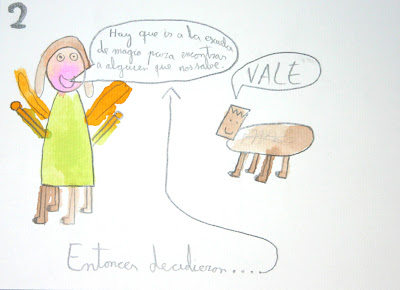 2
Hay que ir a la escuela
de magia para encontrar
a alguien que nos salve.
VALE
Entonces decidieron....